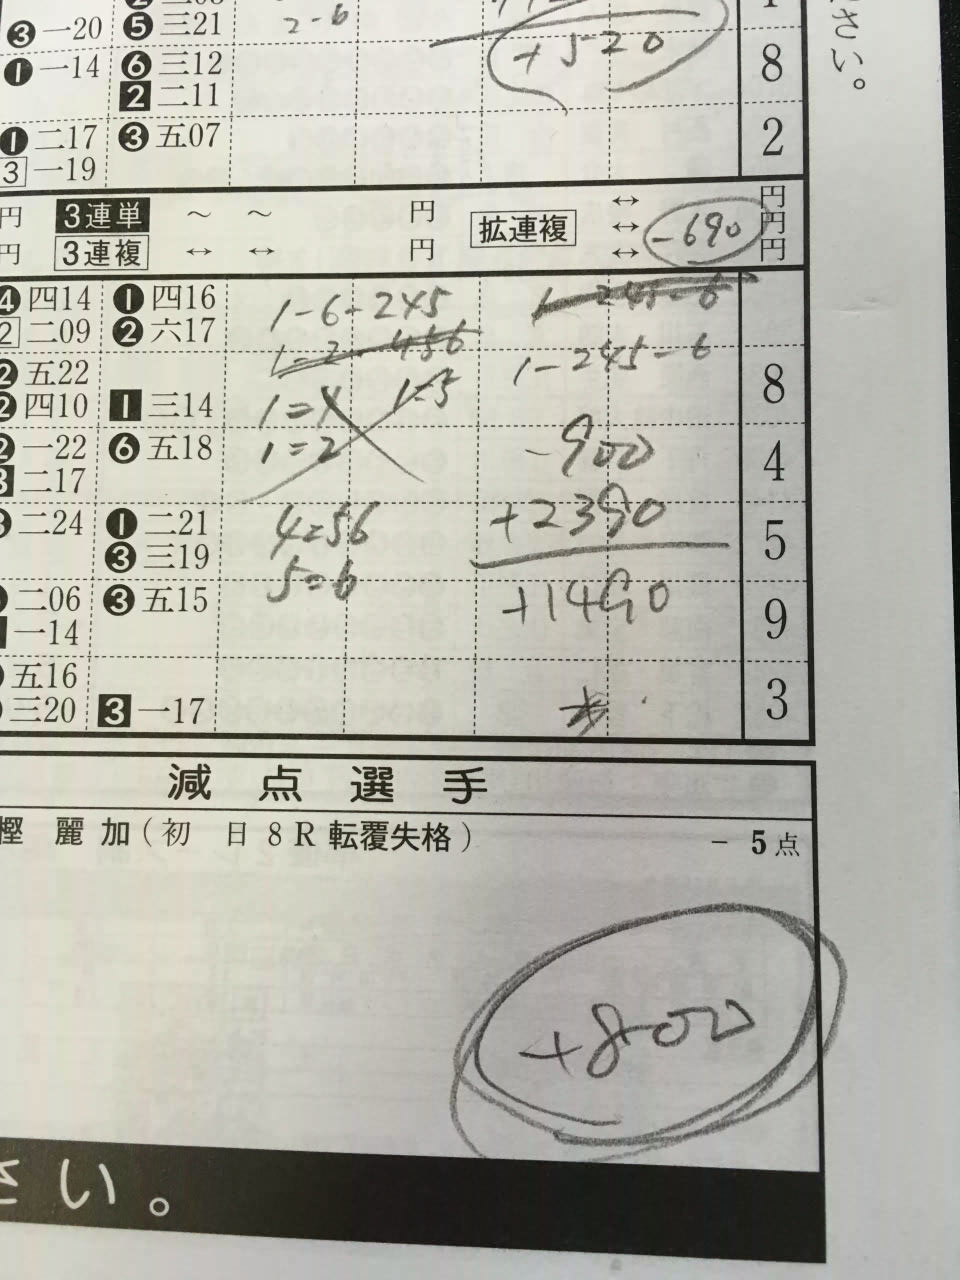 さい。
❸一20 ❺三21 2-6
❶一14 ❻三12 +520 8
2 二11
❶二17 ❸五07 2
3 一19
円 3連単 ～ ～ 円 拡連複 ↔ 円
↔ -690 円
円 3連複 ↔ ↔ 円 ↔ 円
❹四14 ❶四16 1-6-245 1-245-6
2 二09 ❷六17 1=2-456
❷五22 1-245-6 8
❷四10 1 三14 1=4 1=5
❷一22 ❻五18 1=2 -900 4
3 二17
二24 ❶二21 4=56 +2390 5
❸三19 5=6
二06 ❸五15 +1490 9
一14
五16 3
三20 3 一17
減点選手
樫 麗加(初 日 8R転覆失格) － 5点
+800
さい。